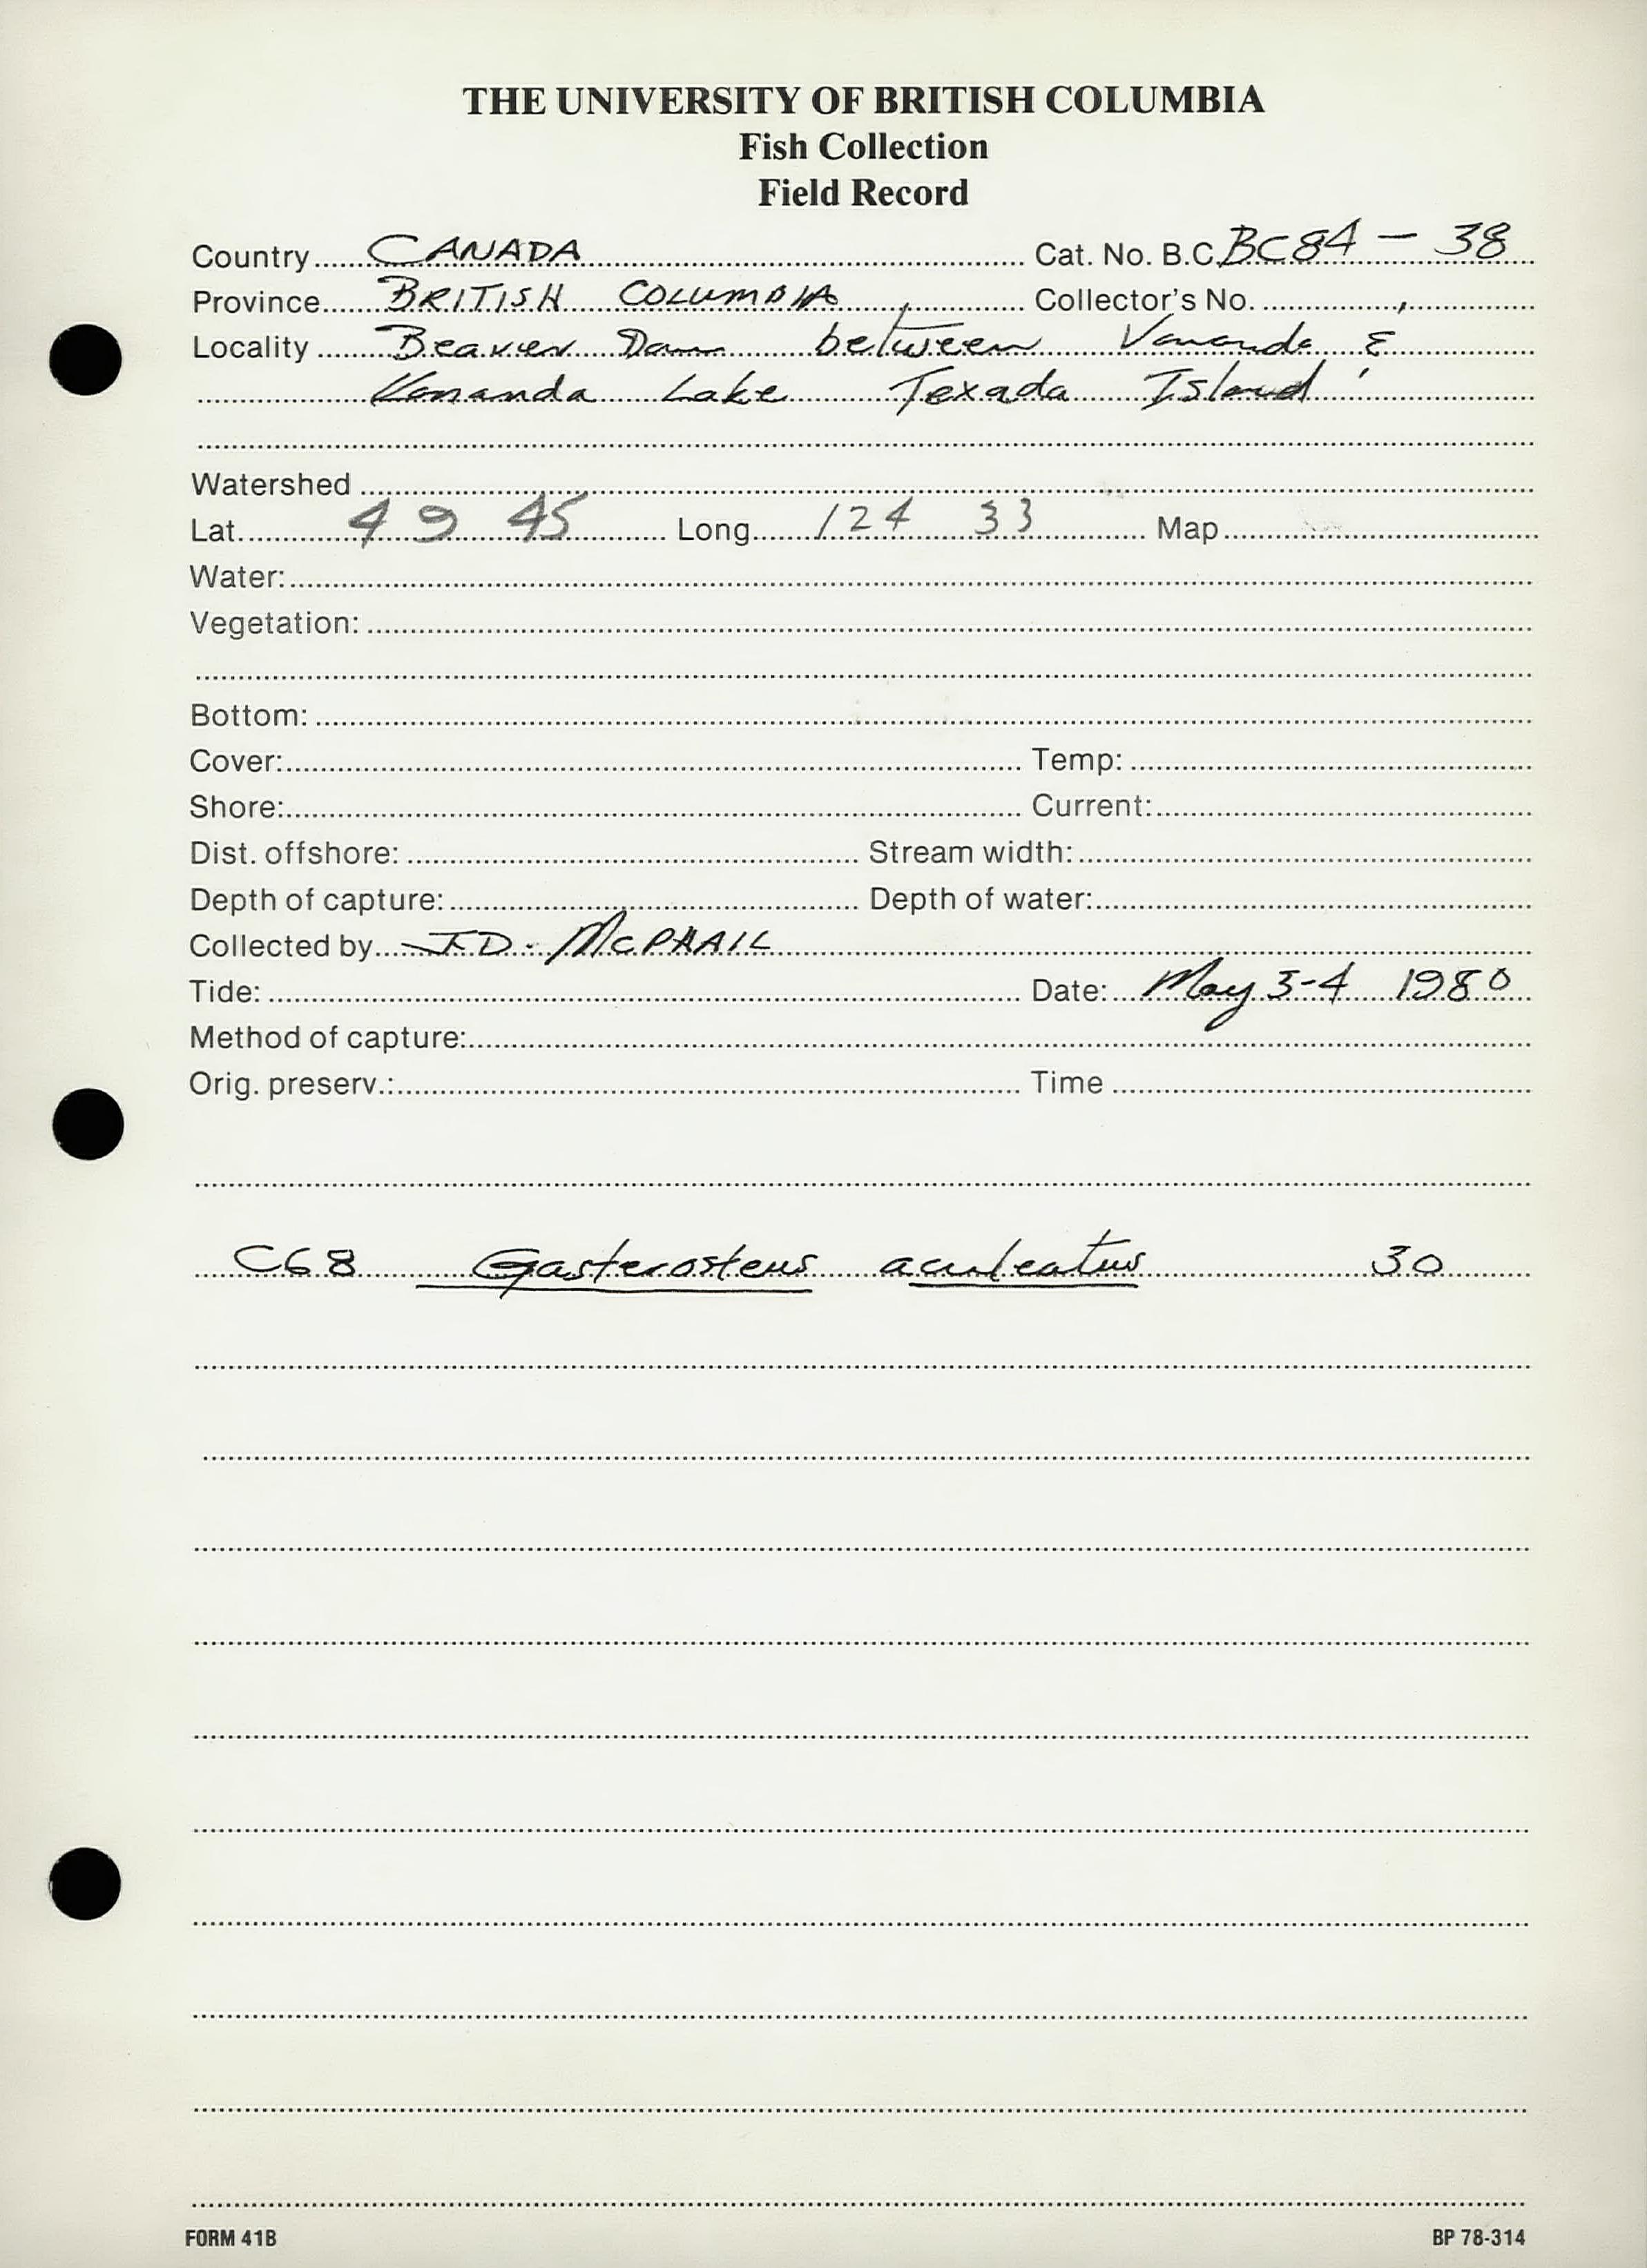 THE UNIVERSITY OF BRITISH COLUMBIA
Fish Collection
Field Record
Country CANADA Cat. No. B.C. BC84-38
Province BRITISH COLUMBIA Collector's No.
Locality Beaver Dam between Vananda &
Vananda Lake Texada Island
Watershed
Lat. 49 45 Long. 124 33 Map
Water:
Vegetation:
Bottom:
Cover: Temp:
Shore: Current:
Dist. offshore: Stream width:
Depth of capture: Depth of water:
Collected by J.D. McPHAIL
Tide: Date: May 3-4 1980
Method of capture:
Orig. preserv.: Time
C68 Gasterosteus aculeatus 30
FORM 41B BP 78-314